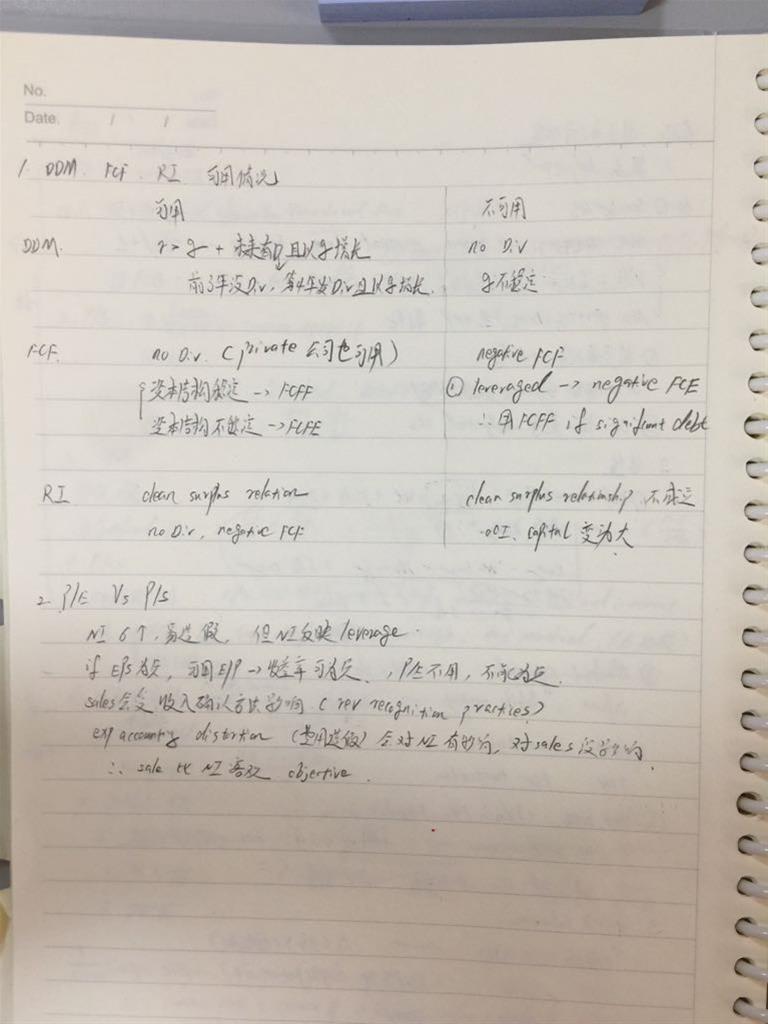 No.
Date. / /
1. DDM. FCF. RI 可用情况
可用 不可用
DDM. r > g + 未来有D且以g增长 no Div
前3年没Div, 第4年发Div且以g增长. g不稳定
FCF. no Div. (private 公司也可用) negative FCF
资本结构稳定 → FCFF ① leveraged → negative FCE
资本结构不稳定 → FCFE ∴用FCFF if significant debt
RI clean surplus relation clean surplus relationship 不成立
no Div, negative FCF OCI. capital 变动大
2. P/E Vs P/S
NI 6个, 易造假, 但NI反映leverage.
if EPS为负, 可用E/P → 收益率可为负, P/E不用, 不能为负.
sales会受收入确认方法影响 (rev recognition practices)
exp accounting distortion (费用造假) 会对NI有影响, 对sales没影响.
∴ sale 比 NI 客观 objective.